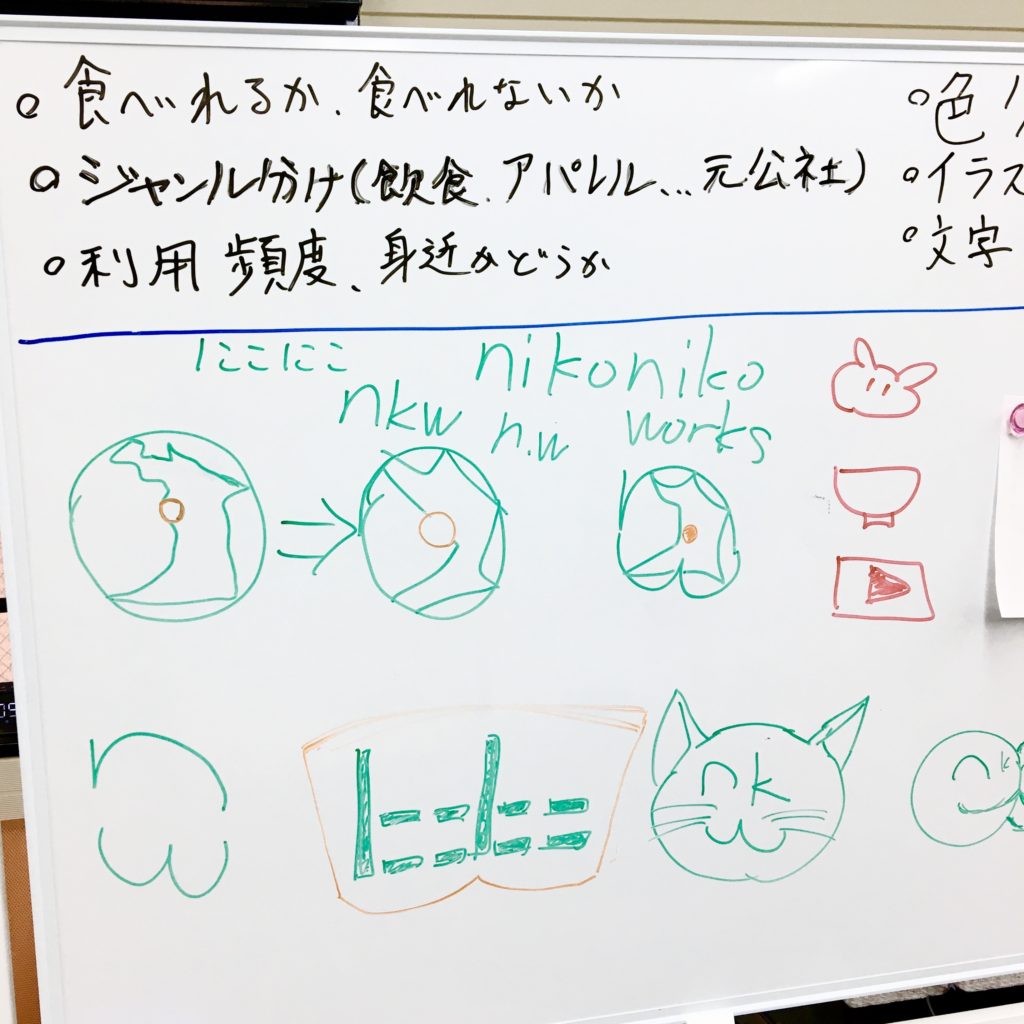 食べれるか、食べれないか
ジャンル分け(飲食、アパレル...元公社)
利用頻度、身近かどうか
色
イラス
文字
にこにこ
nikoniko
nkw n.w works
nk
にこにこ
k